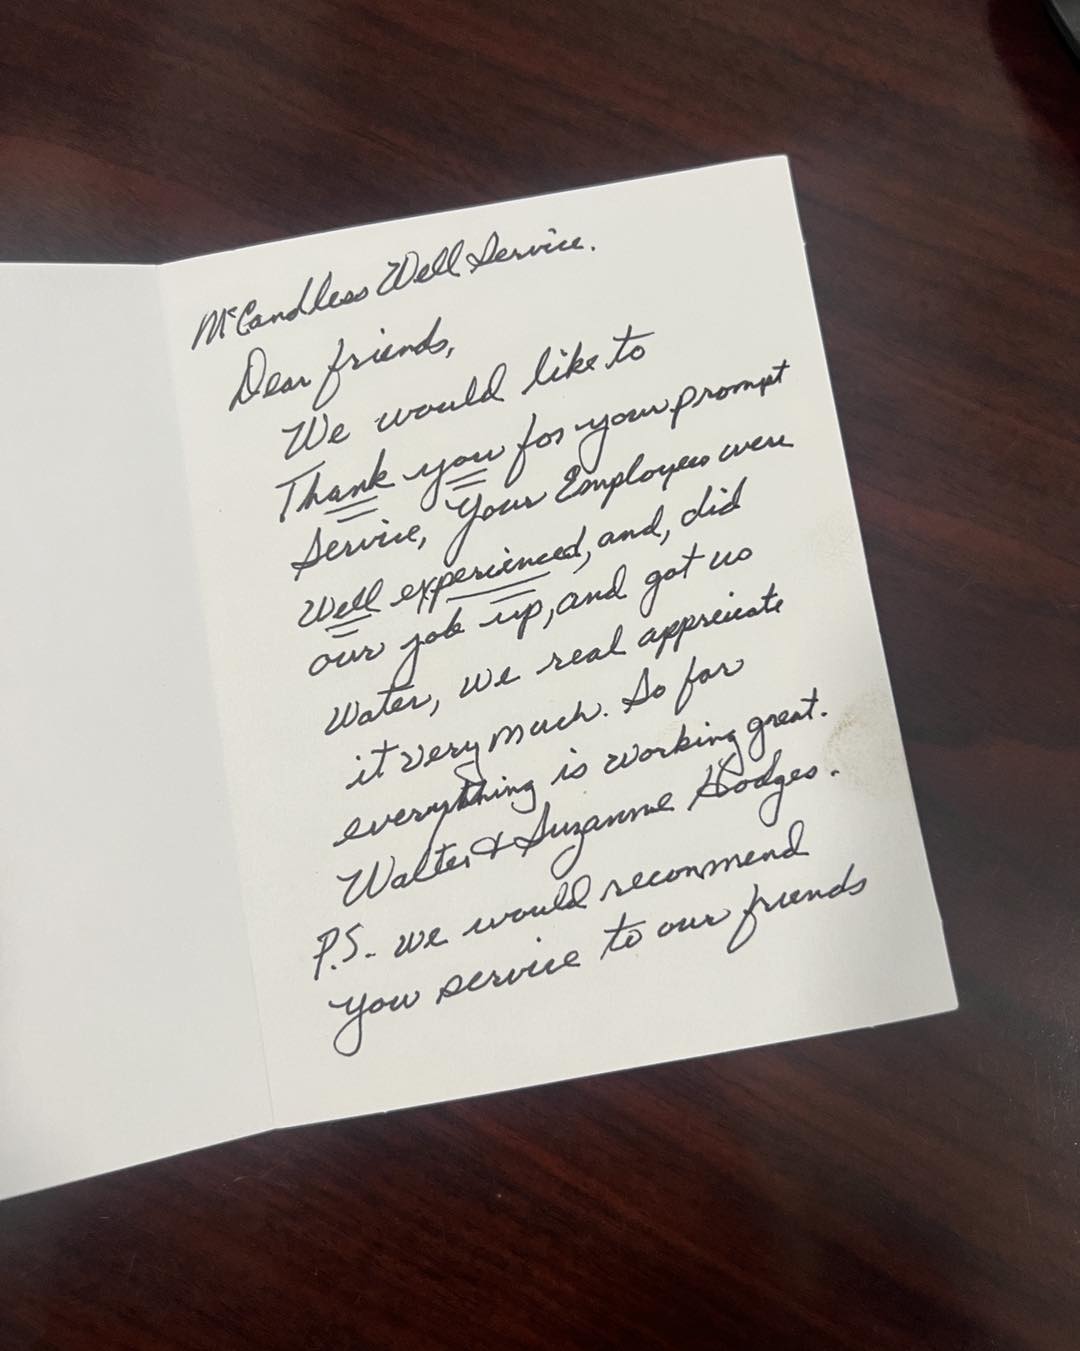 McCandless Well Service.
Dear friends,
We would like to
Thank you for your prompt
Service, Your Employees were
Well experienced, and, did
our job up, and got us
Water, we real appreicate
it very much. So far
everything is working great.
Walter & Suzanne Hodges.
P.S. we would recommend
your service to our friends